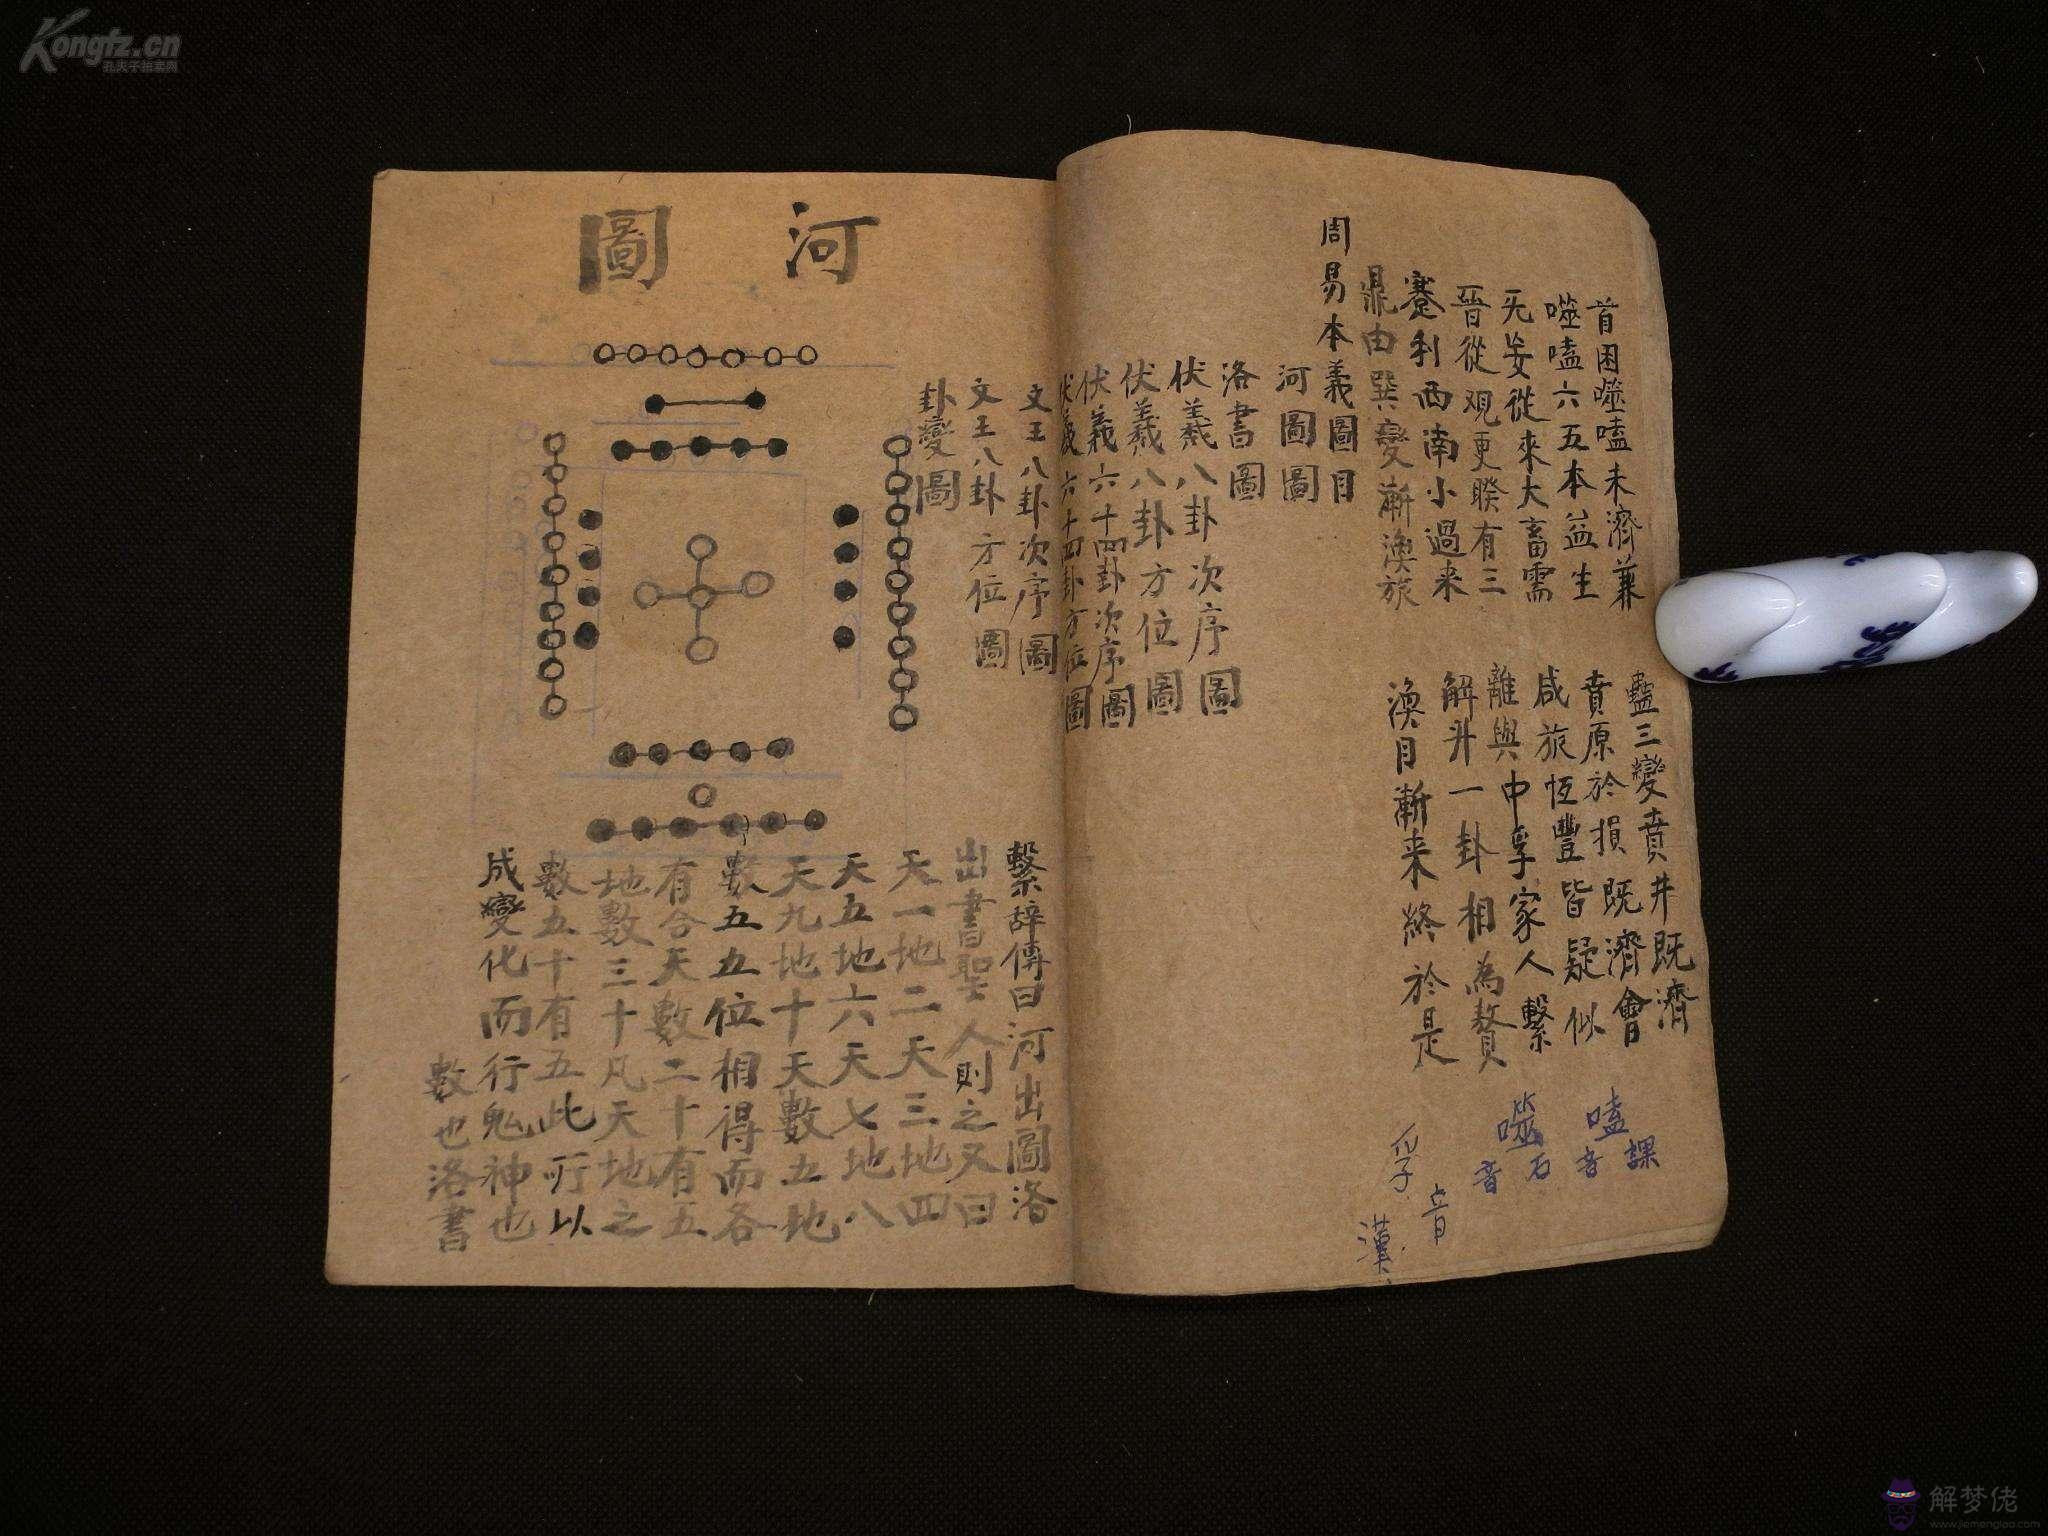 Kongfz.cn
孔夫子拍卖网
首困噬嗑未濟兼
蠱三變賁井既濟
噬嗑六五本益生
賁原於損既濟會
无妄從來大畜需
咸旅恆豐皆疑似
晉從观更睽有三
離與中孚家人繫
蹇利西南小過来
解升一卦相為贅
鼎由巽變漸渙旅
渙自漸来終於是
嗑音課
噬音石
孚音
漢
周易本義圖目
河圖圖
洛書圖
伏羲八卦次序圖
伏羲八卦方位圖
伏羲六十四卦次序圖
伏羲六十四卦方位圖
文王八卦次序圖
文王八卦方位圖
卦變圖
河圖
繫辞傳曰河出圖洛
出書聖人則之又曰
天一地二天三地四
天五地六天七地八
天九地十天數五地
數五五位相得而各
有合天數二十有五
地數三十凡天地之
數五十有五此所以
成變化而行鬼神也
數也洛書
解梦佬
www.jiemenglao.com